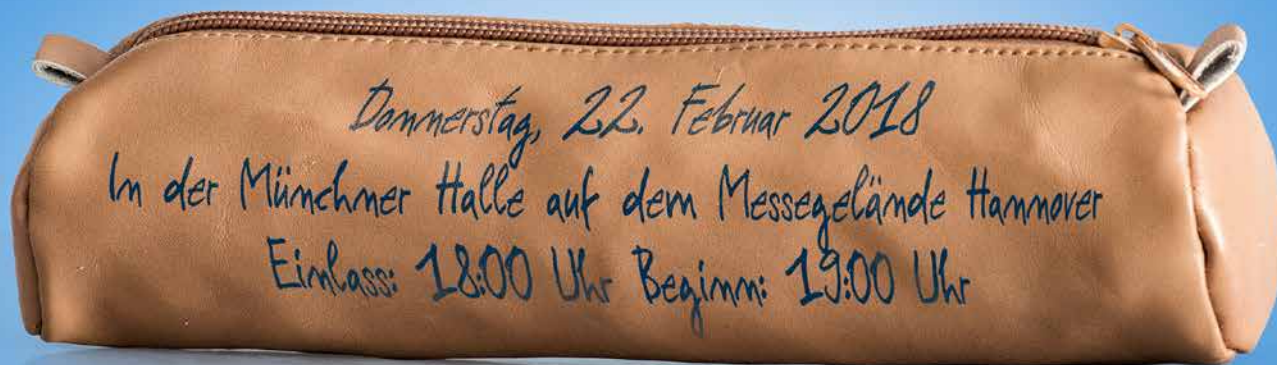 Donnerstag, 22. Februar 2018
In der Münchner Halle auf dem Messegelände Hannover
Einlass: 18:00 Uhr Beginn: 19:00 Uhr